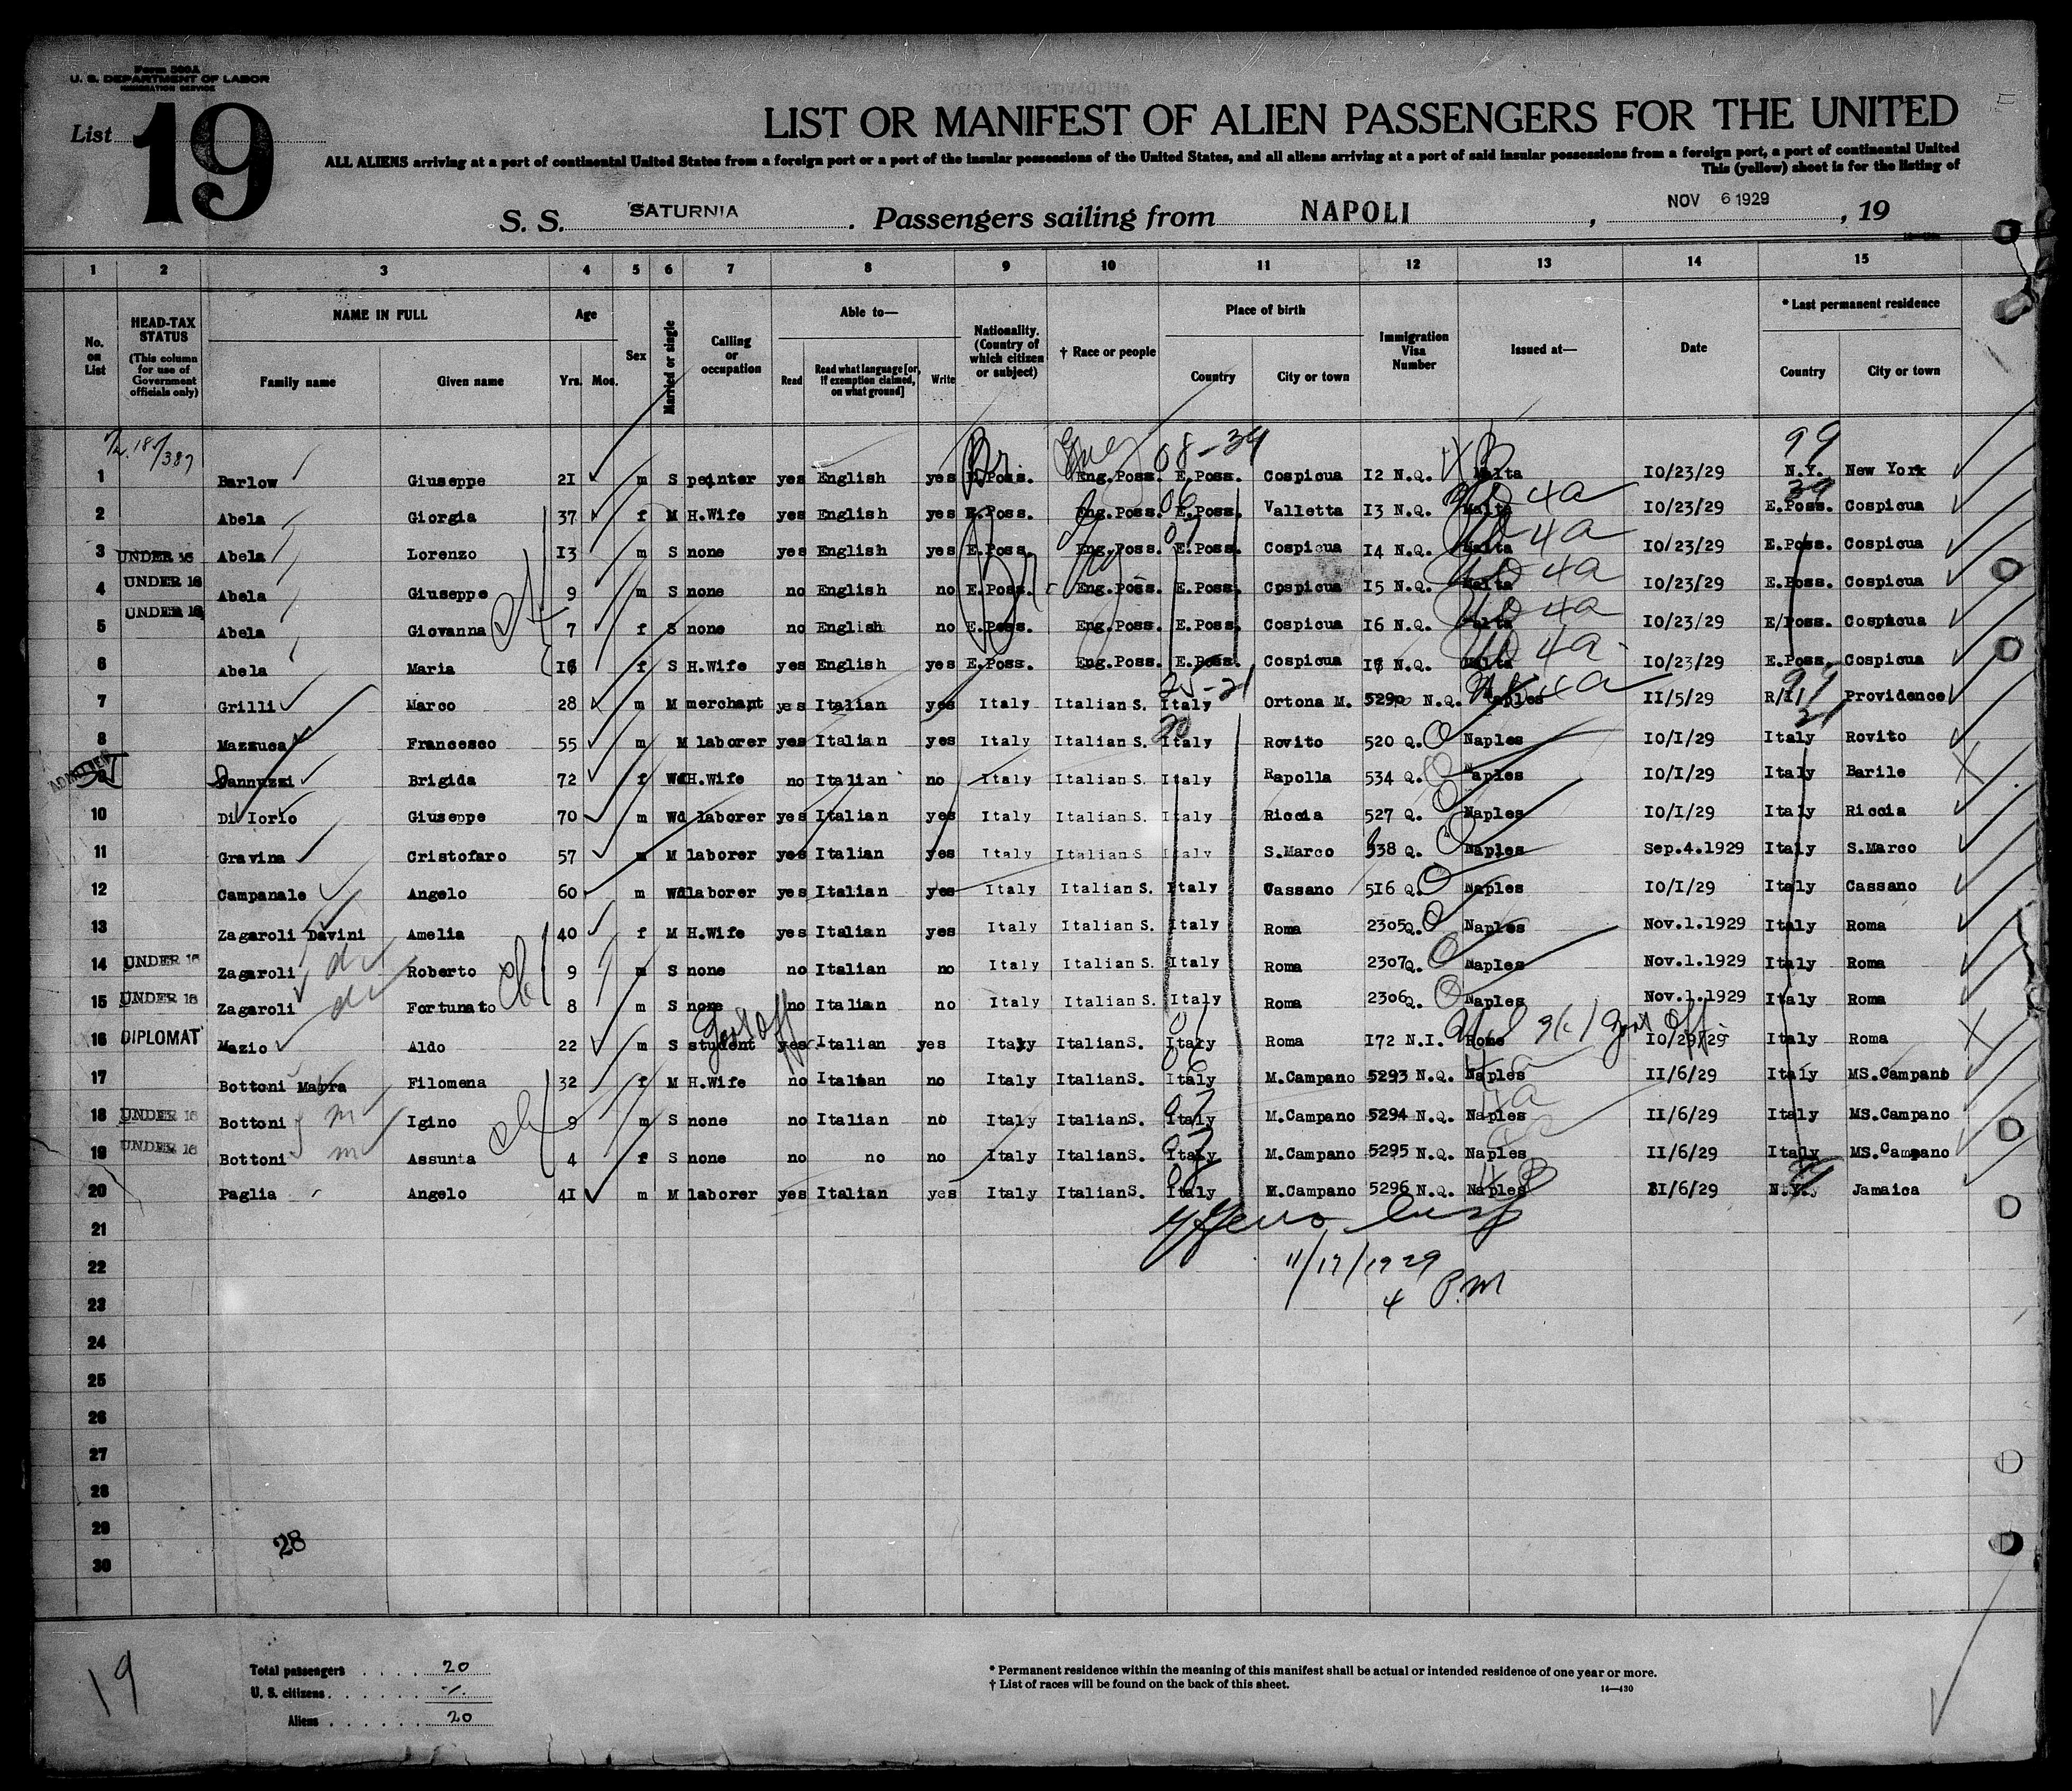 Form 500A
U. S. DEPARTMENT OF LABOR
IMMIGRATION SERVICE
List 19
LIST OR MANIFEST OF ALIEN PASSENGERS FOR THE UNITED
ALL ALIENS arriving at a port of continental United States from a foreign port or a port of the insular possessions of the United States, and all aliens arriving at a port of said insular possessions from a foreign port, a port of continental United
This (yellow) sheet is for the listing of
S. S. SATURNIA. Passengers sailing from NAPOLI, NOV 6 1929, 19
1 2 3 4 5 6 7 8 9 10 11 12 13 14 15
No. on List
HEAD-TAX STATUS (This column for use of Government officials only)
NAME IN FULL
Family name Given name
Age
Yrs. Mos.
Sex
Married or single
Calling or occupation
Able to—
Read Read what language [or, if exemption claimed, on what ground] Write
Nationality. (Country of which citizen or subject)
† Race or people
Place of birth
Country City or town
Immigration Visa Number
Issued at—
Date
* Last permanent residence
Country City or town
08-39 99
1 Barlow Giuseppe 21 m S painter yes English yes E.Poss. Eng.Poss. E.Poss. Cospicua 12 N.Q. Malta 10/23/29 N.Y. New York
2 Abela Giorgia 37 f M H.Wife yes English yes E.Poss. Eng.Poss. E.Poss. Valletta 13 N.Q. Malta 4a 10/23/29 E.Poss. Cospicua
3 UNDER 16 Abela Lorenzo 13 m S none yes English yes E.Poss. Eng.Poss. E.Poss. Cospicua 14 N.Q. Malta 4a 10/23/29 E.Poss. Cospicua
4 UNDER 16 Abela Giuseppe 9 m S none no English no E.Poss. Eng.Poss. E.Poss. Cospicua 15 N.Q. Malta 4a 10/23/29 E.Poss. Cospicua
5 UNDER 16 Abela Giovanna 7 f S none no English no E.Poss. Eng.Poss. E.Poss. Cospicua 16 N.Q. Malta 4a 10/23/29 E/Poss. Cospicua
6 Abela Maria f S H.Wife yes English yes E.Poss. Eng.Poss. E.Poss. Cospicua N.Q. Malta 4a 10/23/29 E.Poss. Cospicua
7 Grilli Marco 28 m M merchant yes Italian yes Italy Italian S. Italy Ortona M. 5290 N.Q. Naples 4a 11/5/29 R/I/ Providence
8 Mazzuca Francesco 55 m M laborer yes Italian yes Italy Italian S. Italy Rovito 520 Q. Naples 10/1/29 Italy Rovito
ADMITTED Brigida 72 f Wd H.Wife no Italian no Italy Italian S. Italy Rapolla 534 Q. Naples 10/1/29 Italy Barile
10 Di Iorio Giuseppe 70 m Wd laborer yes Italian yes Italy Italian S. Italy Riccia 527 Q. Naples 10/1/29 Italy Riccia
11 Gravina Cristofaro 57 m M laborer yes Italian yes Italy Italian S. Italy S.Marco 538 Q. Naples Sep.4.1929 Italy S.Marco
12 Campanale Angelo 60 m Wd laborer yes Italian yes Italy Italian S. Italy Cassano 516 Q. Naples 10/1/29 Italy Cassano
13 Zagaroli Davini Amelia 40 f M H.Wife yes Italian yes Italy Italian S. Italy Roma 2305 Q. Naples Nov.1.1929 Italy Roma
14 UNDER 16 Zagaroli Roberto 9 m S none no Italian no Italy Italian S. Italy Roma 2307 Q. Naples Nov.1.1929 Italy Roma
15 UNDER 16 Zagaroli Fortunato 8 m S none no Italian no Italy Italian S. Italy Roma 2306 Q. Naples Nov.1.1929 Italy Roma
16 DIPLOMAT Mazio Aldo 22 m S student yes Italian yes Italy Italian S. Italy Roma 172 N.I. Rome 10/29/29 Italy Roma
17 Bottoni Filomena 32 f M H.Wife no Italian no Italy Italian S. Italy M.Campano 5293 N.Q. Naples 11/6/29 Italy MS.Campano
18 UNDER 16 Bottoni Igino 9 m S none no Italian no Italy Italian S. Italy M.Campano 5294 N.Q. Naples 11/6/29 Italy MS.Campano
19 UNDER 16 Bottoni Assunta 4 f S none no no no Italy Italian S. Italy M.Campano 5295 N.Q. Naples 11/6/29 Italy MS.Campano
20 Paglia Angelo 41 m M laborer yes Italian yes Italy Italian S. Italy M.Campano 5296 N.Q. Naples 11/6/29 N.Y. Jamaica
21
22 11/17/1929
23 4 P.M
24
25
26
27
28
29
28
30
19
Total passengers . . . . 20
U. S. citizens . . . . . .
Aliens . . . . . . 20
* Permanent residence within the meaning of this manifest shall be actual or intended residence of one year or more.
† List of races will be found on the back of this sheet.
14—430